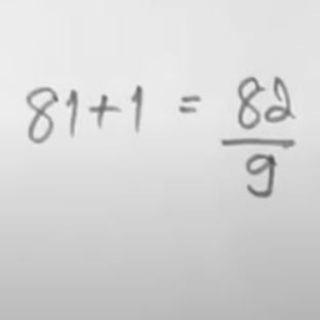 81+1 = 82
9